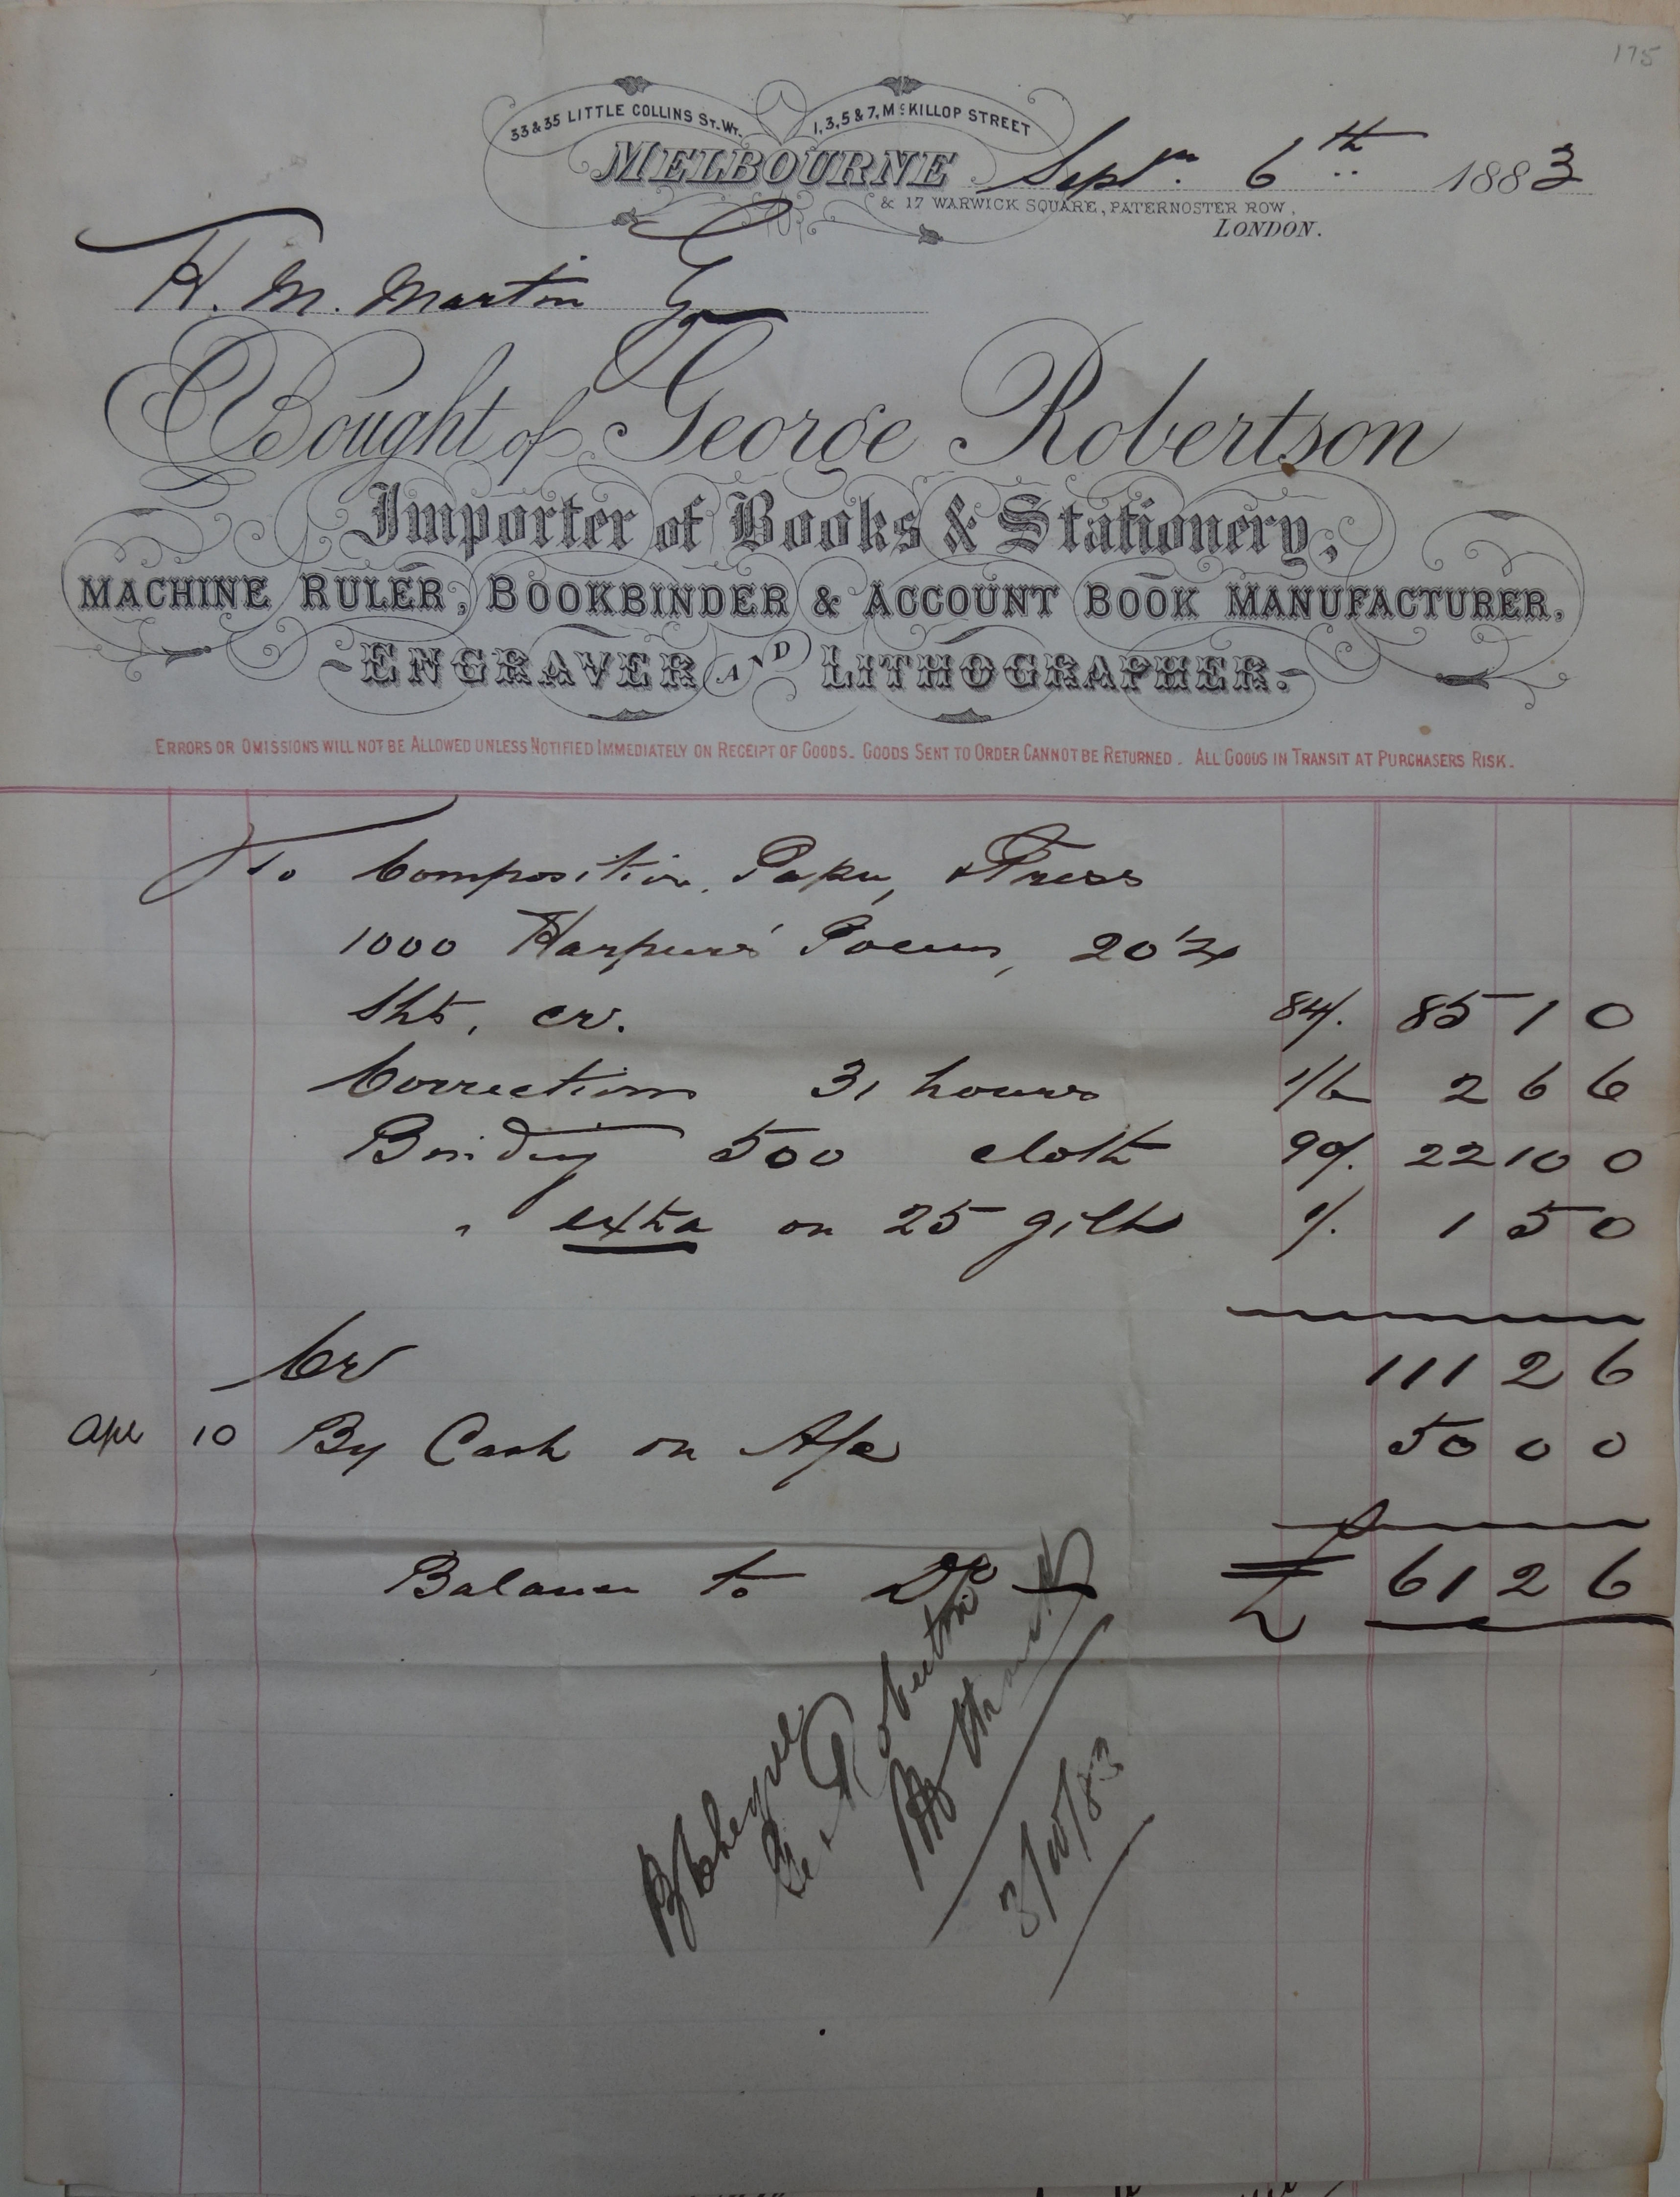 175
33 & 35 LITTLE COLLINS ST. WT. 1, 3, 5 & 7, McKILLOP STREET
MELBOURNE Septr. 6th 1883
& 17 WARWICK SQUARE, PATERNOSTER ROW,
LONDON.
H. M. Martin Esq
Bought of George Robertson
Importer of Books & Stationery,
MACHINE RULER, BOOKBINDER & ACCOUNT BOOK MANUFACTURER,
ENGRAVER AND LITHOGRAPHER.
ERRORS OR OMISSIONS WILL NOT BE ALLOWED UNLESS NOTIFIED IMMEDIATELY ON RECEIPT OF GOODS. GOODS SENT TO ORDER CANNOT BE RETURNED. ALL GOODS IN TRANSIT AT PURCHASERS RISK.
To Composition, Paper, & Press
1000 Harpur's Poems, 20 1/4
Shts, cr. 84/. 85 1 0
Corrections 31 hours 1/6 2 6 6
Binding 500 cloth 90/. 22 10 0
" extra on 25 gilt 1/. 1 5 0
Cr 111 2 6
Apl 10 By Cash on A/c 50 0 0
Balance to Dr £ 61 2 6
By Cheque
Robertson
3/10/83